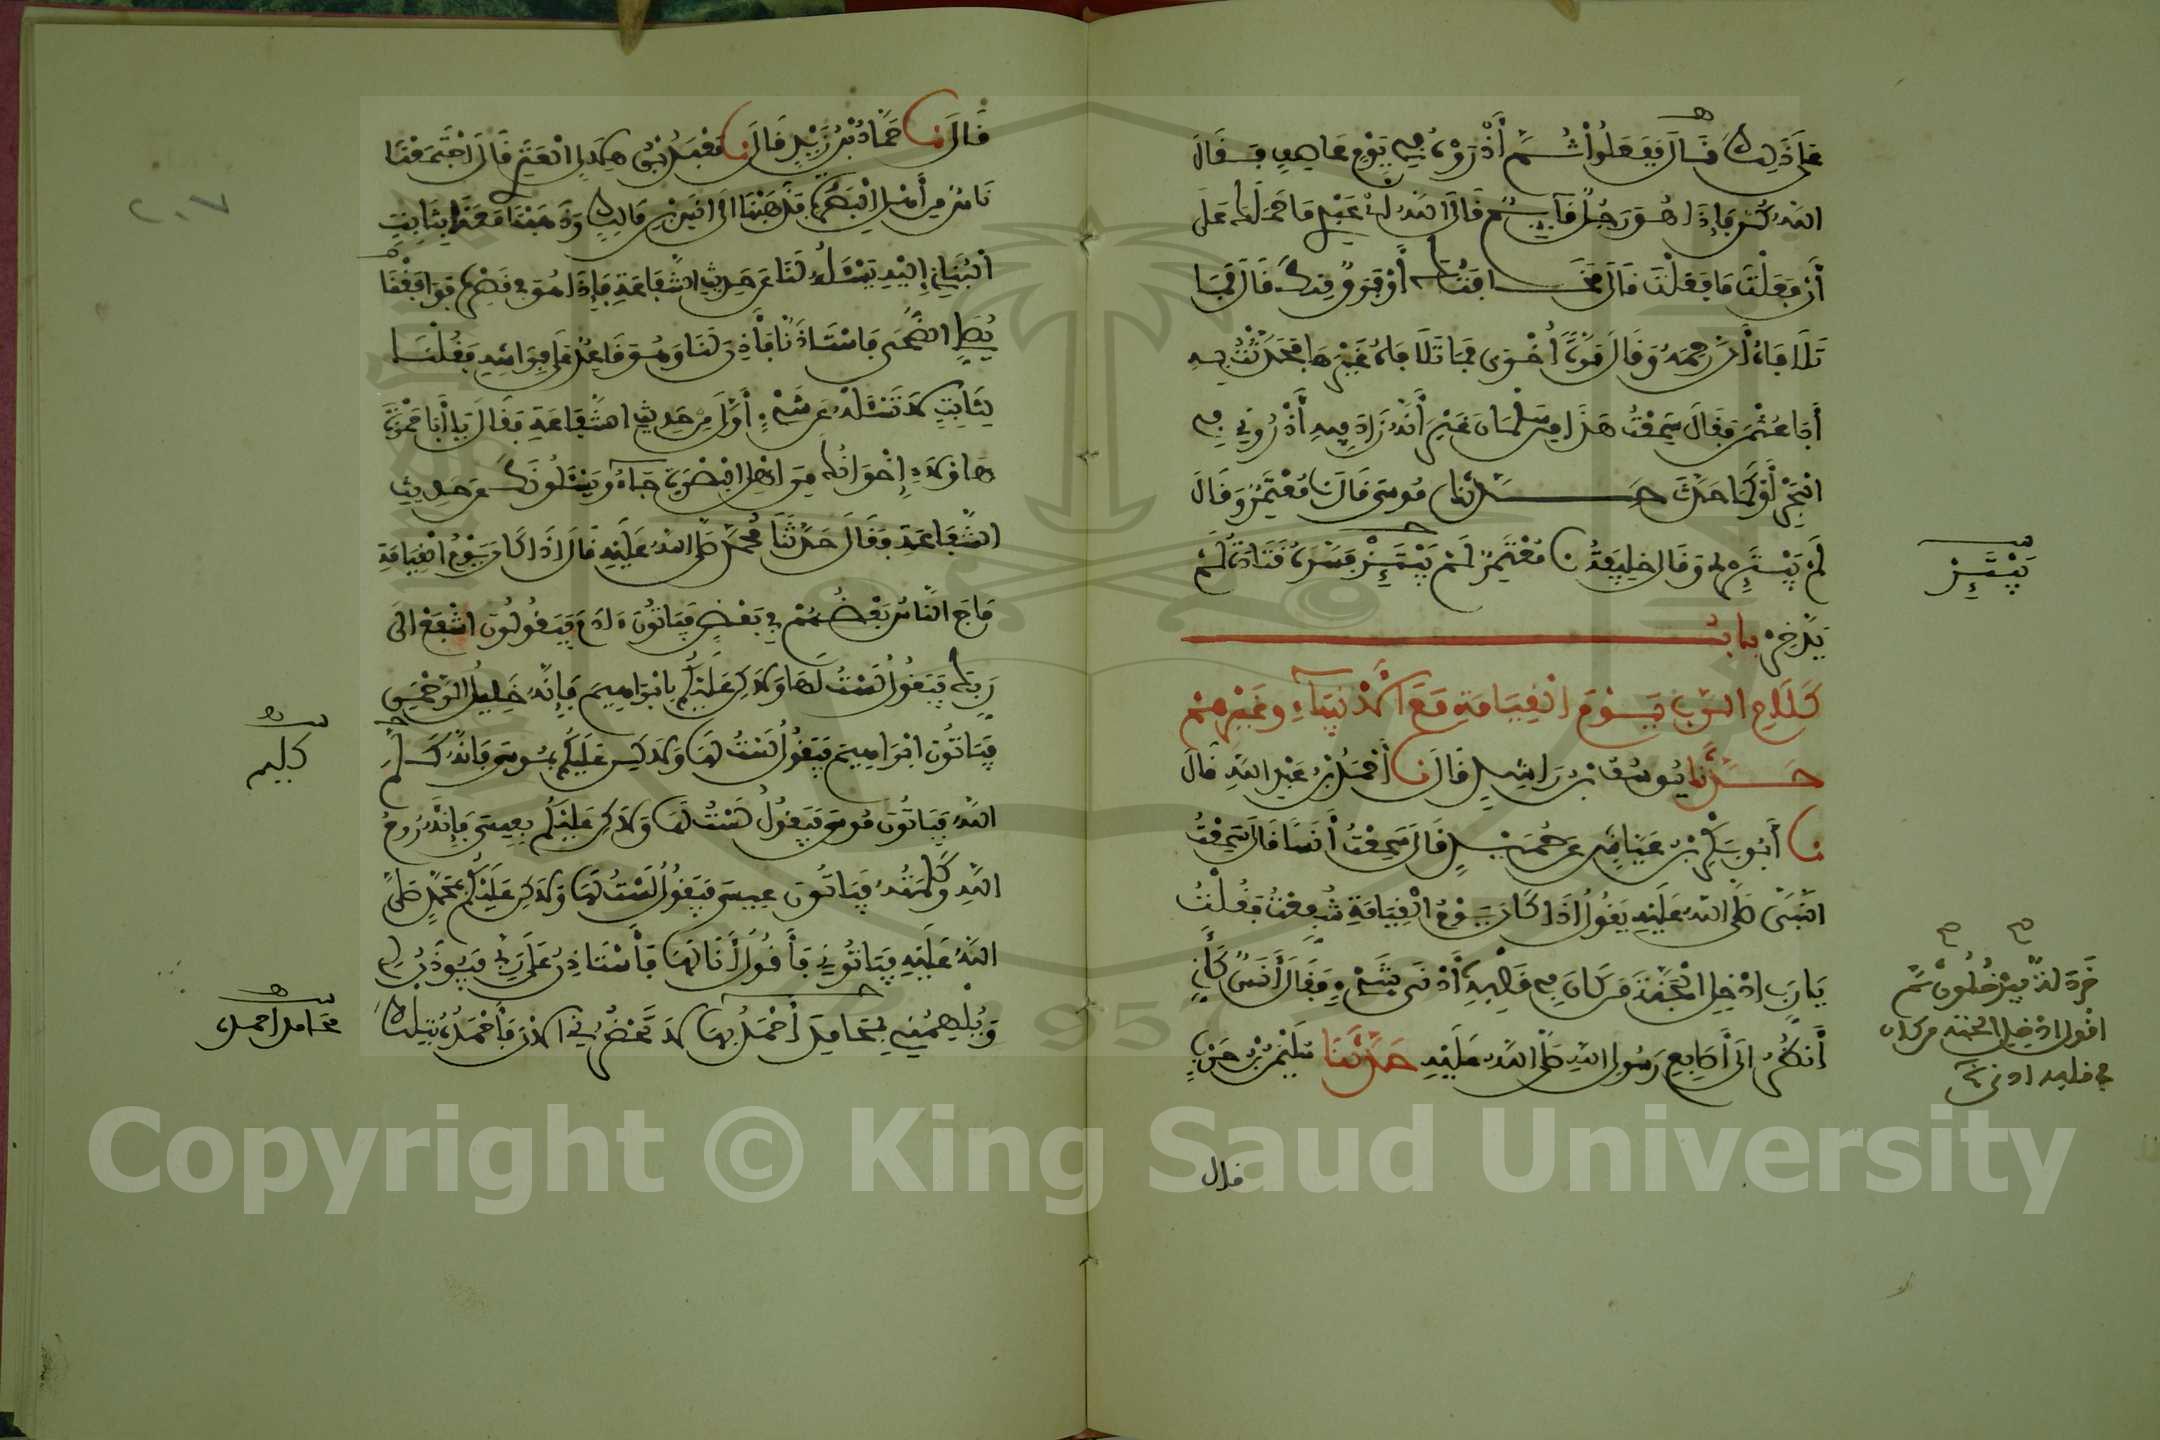 على ذلك قال ففعلوا ثم أذروه في يوم عاصف فقال
الله كن فإذا هو رجل قائم قال الله أي عبدي ما حملك على
أن فعلت ما فعلت قال مخافتك أو فرق منك قال فما
تلافاه أن رحمه وقال مرة أخرى فما تلافاه غيرها فحدثت به
أبا عثمن فقال سمعت هذا من سلمان غير أنه زاد فيه أذروني في
البحر أو كما حدث حدثنا موسى قال نا معتمر وقال
لم يبتئر وقال خليفة نا معتمر لم يبتئز فسره قتادة لم
يدخر باب
كلام الرب يوم القيامة مع الأنبياء وغيرهم
حدثنا يوسف بن راشد قال نا أحمد بن عبد الله قال
نا أبو بكر بن عياش عن حميد قال سمعت أنسا قال سمعت
النبي صلى الله عليه يقول اذا كان يوم القيامة شفعت فقلت
يا رب ادخل الجنة من كان في قلبه أدنى شيء فقال أنس كأني
أنظر الى أصابع رسول الله صلى الله عليه حدثنا سليمن بن حرب
قال
يبتئز
خردلة فيدخلون ثم
اقول ادخل الجنة من كان
في قلبه ادنى شيء
٢٠٧
قال نا حماد بن زيد قال نا معبد بن هلال العنزي قال اجتمعنا
ناس من أهل البصرة فذهبنا الى انس بن مالك وذهبنا معنا بثابت
البناني إليه يسئله لنا عن حديث الشفاعة فإذا هو في قصره فوافقنا
يصلي الضحى فاستاذنا فأذن لنا وهو قاعد على فراشه فقلنا
لثابت لا تسئله عن شيء أول من حديث الشفاعة فقال يا أبا حمزة
هاؤلاء إخوانك من اهل البصرة جاءو يسئلونك عن حديث
الشفاعة فقال حدثنا محمد صلى الله عليه قال اذا كان يوم القيامة
ماج الناس بعضهم في بعض فياتون ءادم فيقولون اشفع الى
ربك فيقول لست لها ولاكن عليكم بابراهيم فإنه خليل الرحمن
فياتون ابراهيم فيقول لست لها ولاكن عليكم بموسى فانه كلم
الله فياتون موسى فيقول لست لها ولاكن عليكم بعيسى فإنه روح
الله وكلمته فياتون عيسى فيقول لست لها ولاكن عليكم بمحمد صلى
الله عليه فياتوني فأقول أنا لها فأستاذن على ربي فيوذن لي
ويلهمني محامد أحمده بها لا تحضرني الان فأحمده بتلك
كليم
محامد احمده
Copyright © King Saud University